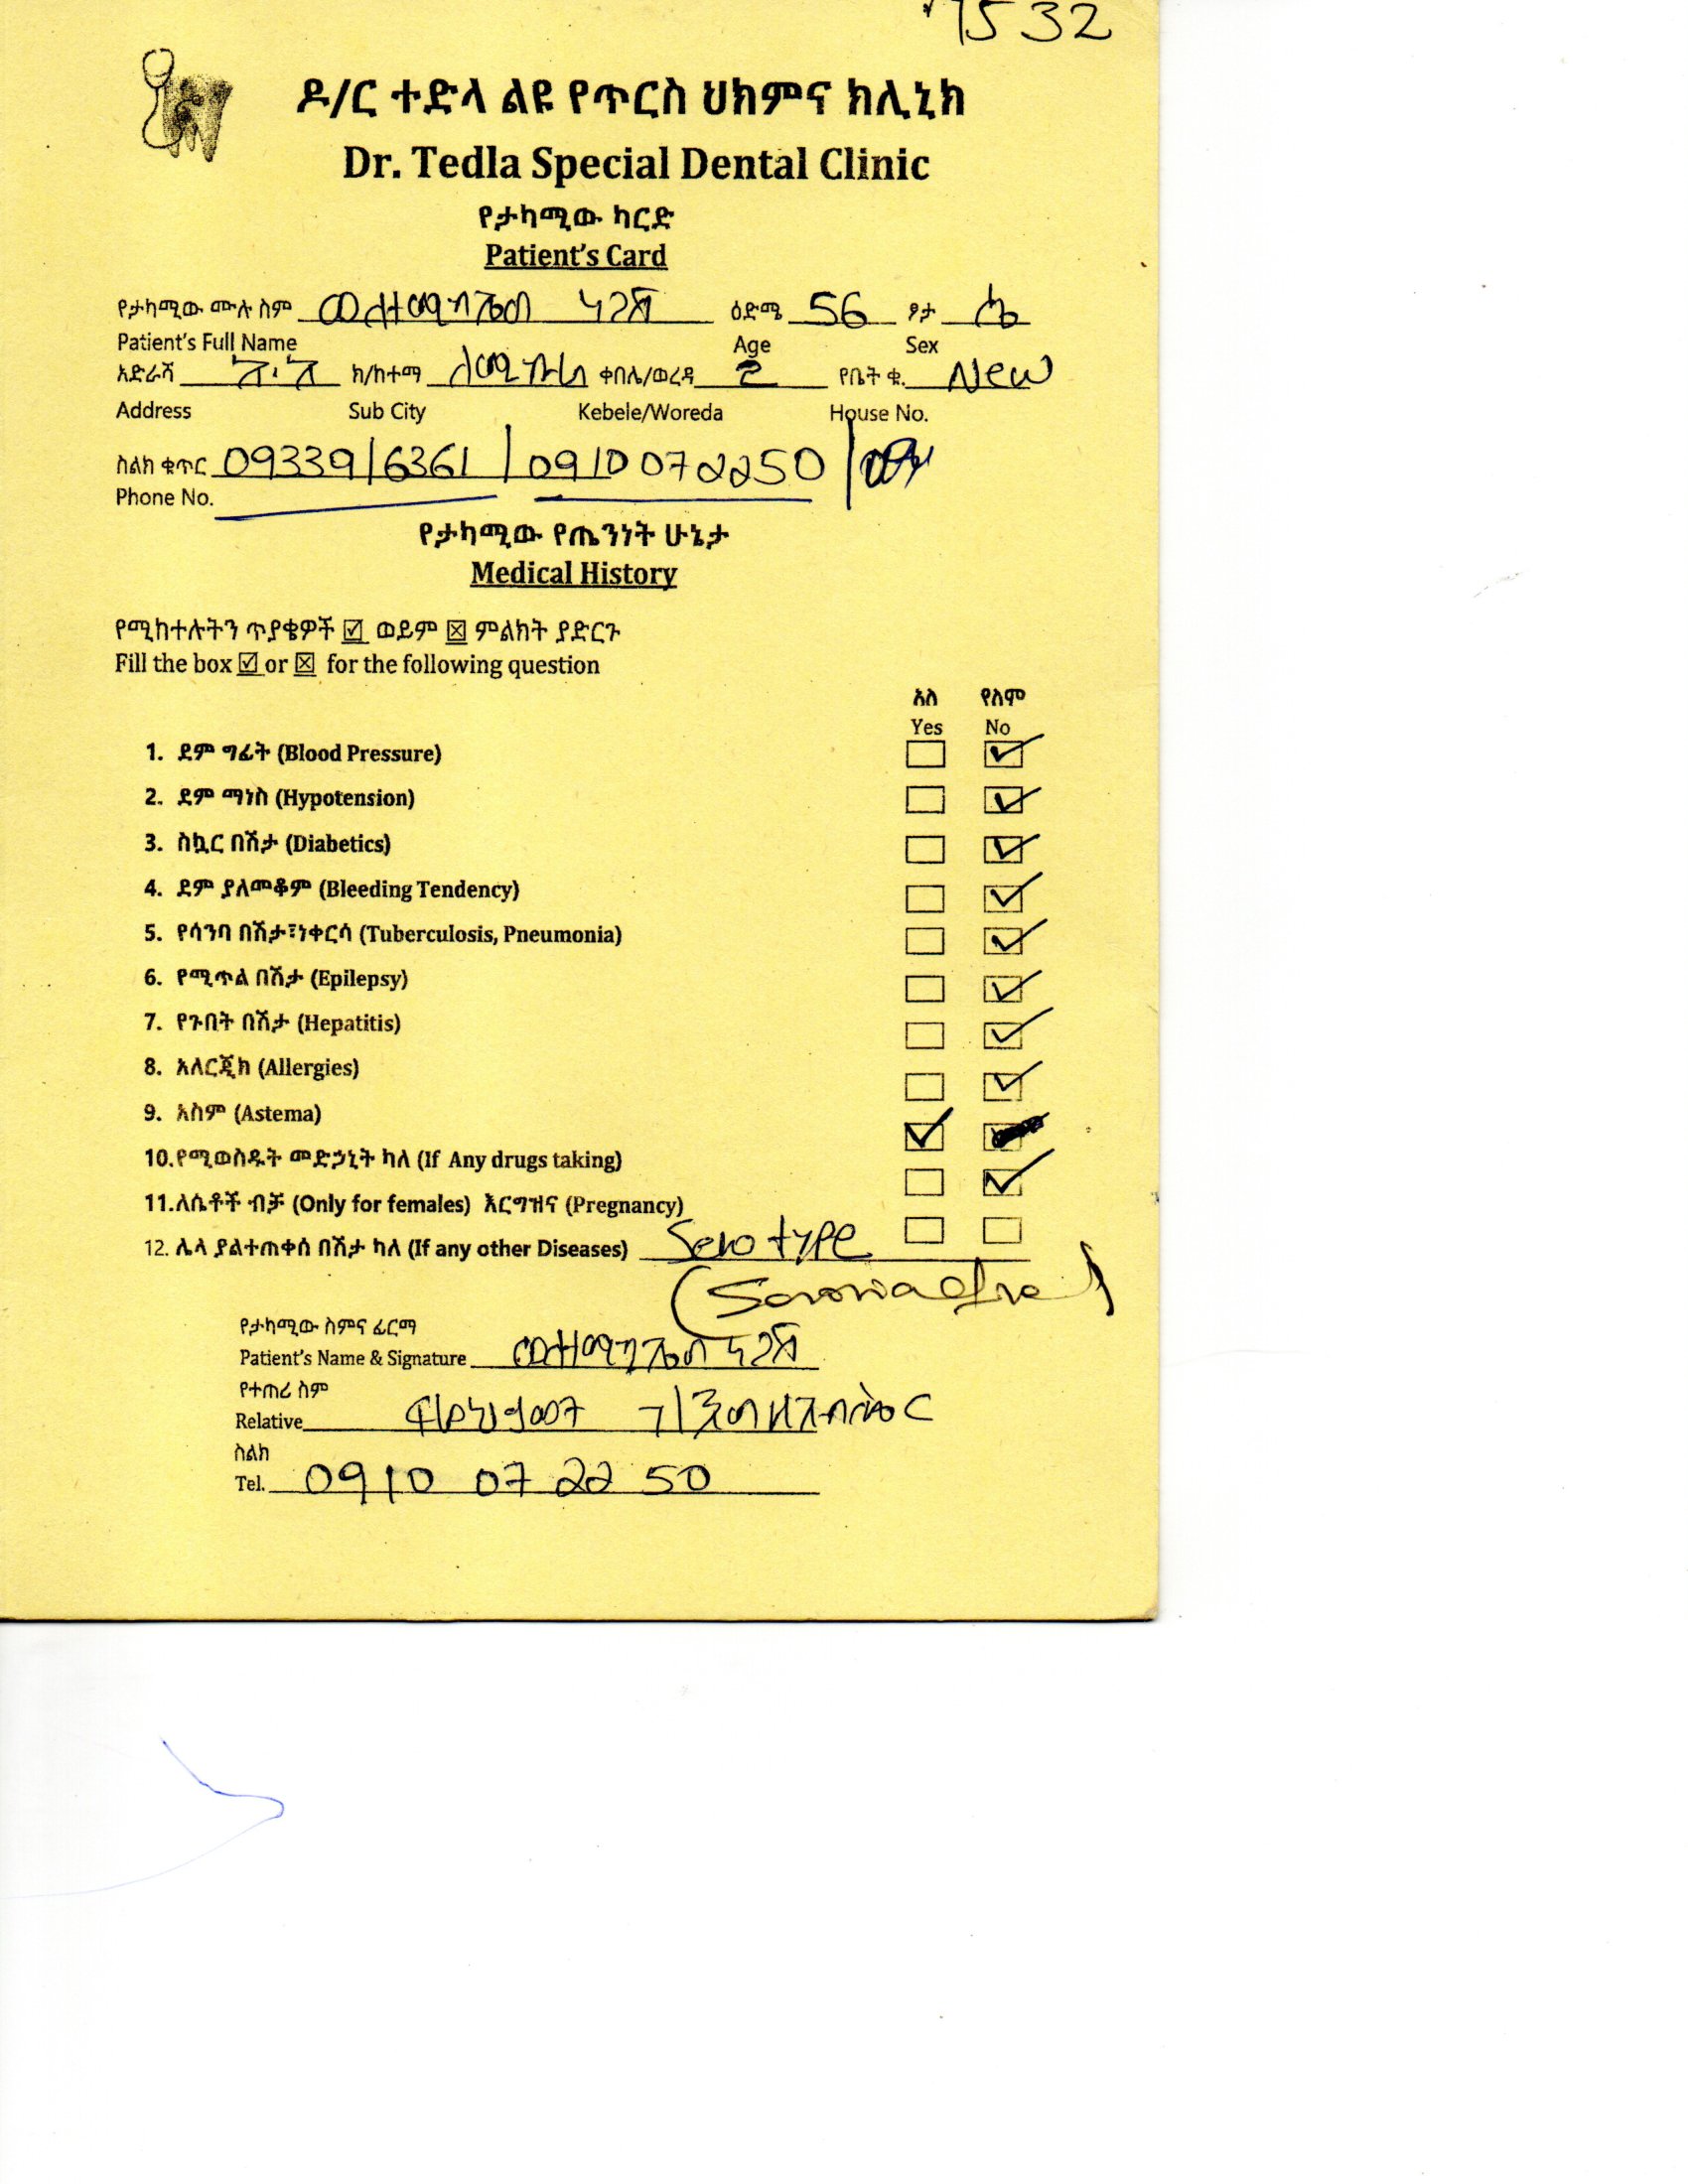 7532
ዶ/ር ተድላ ልዩ የጥርስ ህክምና ክሊኒክ
Dr. Tedla Special Dental Clinic
የታካሚው ካርድ
Patient's Card
የታካሚው ሙሉ ስም ዕድሜ 56 ፆታ ሴ
Patient's Full Name Age Sex
አድራሻ አ.አ ክ/ከተማ ለሚ ኩራ ቀበሌ/ወረዳ 2 የቤት ቁ. New
Address Sub City Kebele/Woreda House No.
ስልክ ቁጥር 0933916361 / 0910072250 /
Phone No.
የታካሚው የጤንነት ሁኔታ
Medical History
የሚከተሉትን ጥያቄዎች ☑ ወይም ☒ ምልክት ያድርጉ
Fill the box ☑ or ☒ for the following question
አለ የለም
Yes No
1. ደም ግፊት (Blood Pressure)
2. ደም ማነስ (Hypotension)
3. ስኳር በሽታ (Diabetics)
4. ደም ያለመቆም (Bleeding Tendency)
5. የሳንባ በሽታ፣ነቀርሳ (Tuberculosis, Pneumonia)
6. የሚጥል በሽታ (Epilepsy)
7. የጉበት በሽታ (Hepatitis)
8. አለርጂክ (Allergies)
9. አስም (Astema)
10.የሚወስዱት መድኃኒት ካለ (If Any drugs taking)
11.ለሴቶች ብቻ (Only for females) እርግዝና (Pregnancy)
12. ሌላ ያልተጠቀሰ በሽታ ካለ (If any other Diseases)
የታካሚው ስምና ፊርማ
Patient's Name & Signature
የተጠሪ ስም
Relative
ስልክ
Tel. 0910 07 22 50